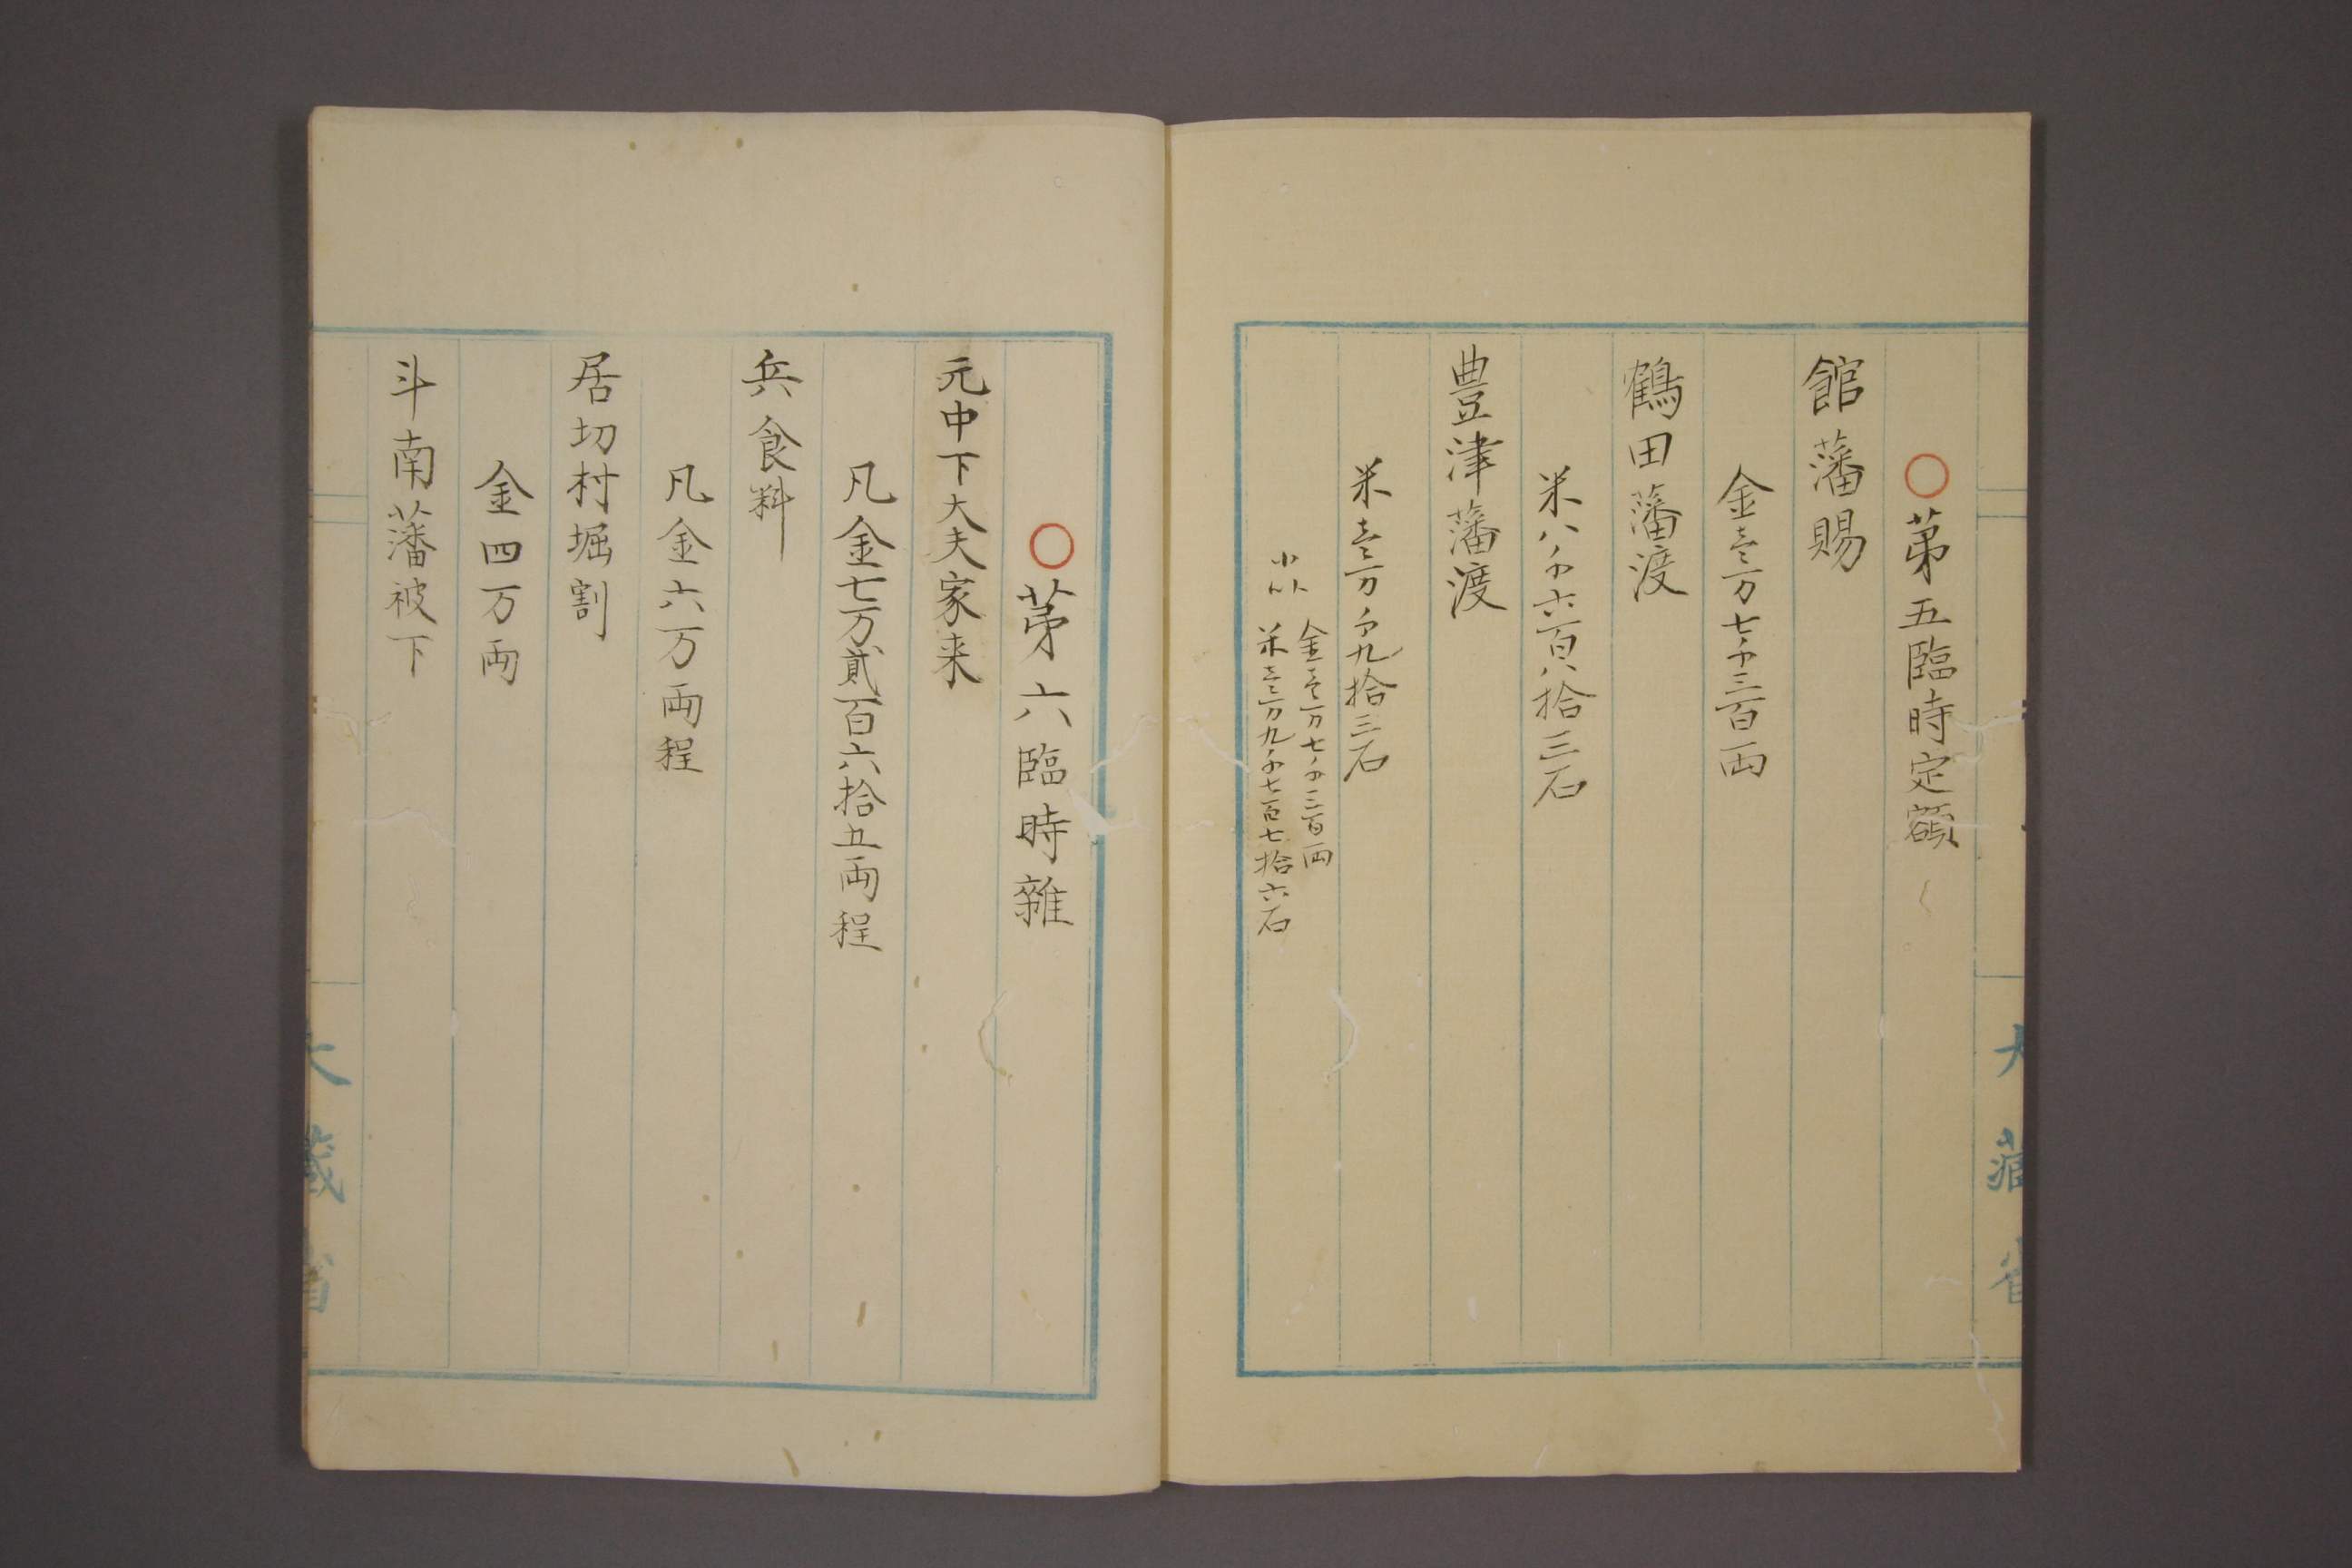 〇第五臨時定額
館藩賜
金壱万七千三百両
鶴田藩渡
米八千六百八拾三石
豊津藩渡
米壱万千九拾三石
小以
金壱万七千三百両
米壱万九千七百七拾六石
大藏省
〇第六臨時雜
元中下大夫家来
凡金七万貳百六拾五両程
兵食料
凡金六万両程
居切村堀割
金四万両
斗南藩被下
大藏省